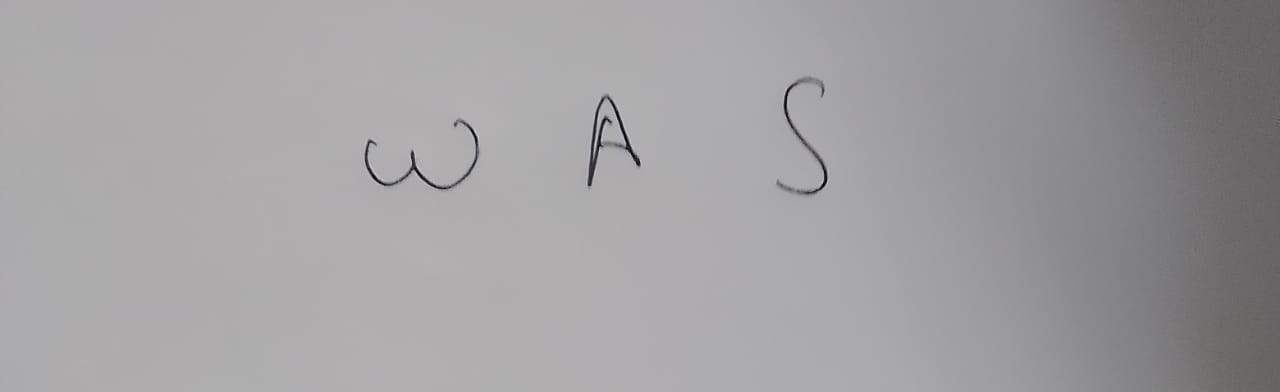 W A S